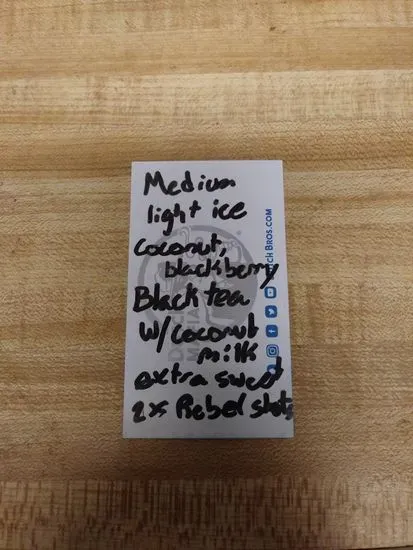 Medium
light ice
coconut,
blackberry
Black tea
w/coconut
milk
extra sweet
2x Rebel shots
CH BROS.COM